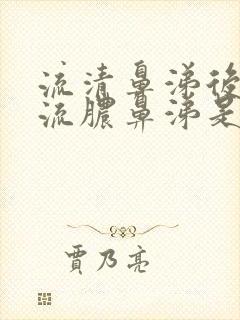 流清鼻涕後
流膿鼻涕是
賈乃亮